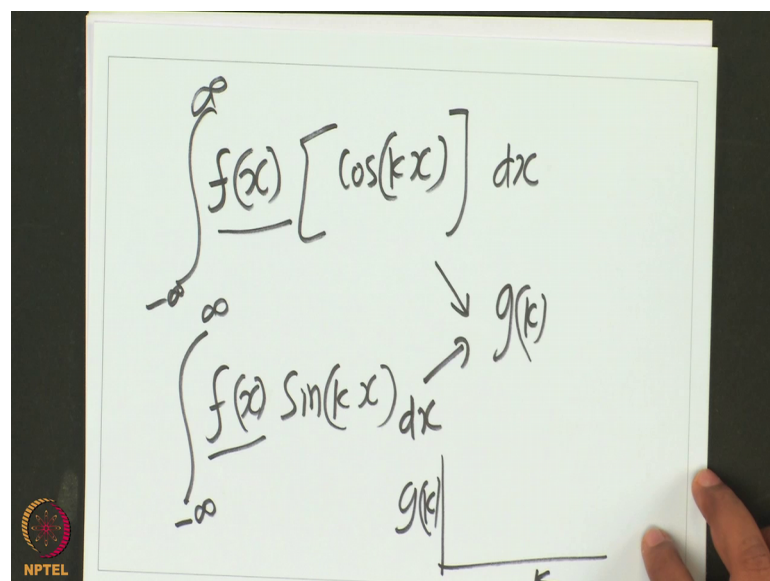 ∞
∫ f(x) [cos(kx)] dx
-∞
g(k)
∞
∫ f(x) sin(kx) dx
-∞
g(k)
k
NPTEL